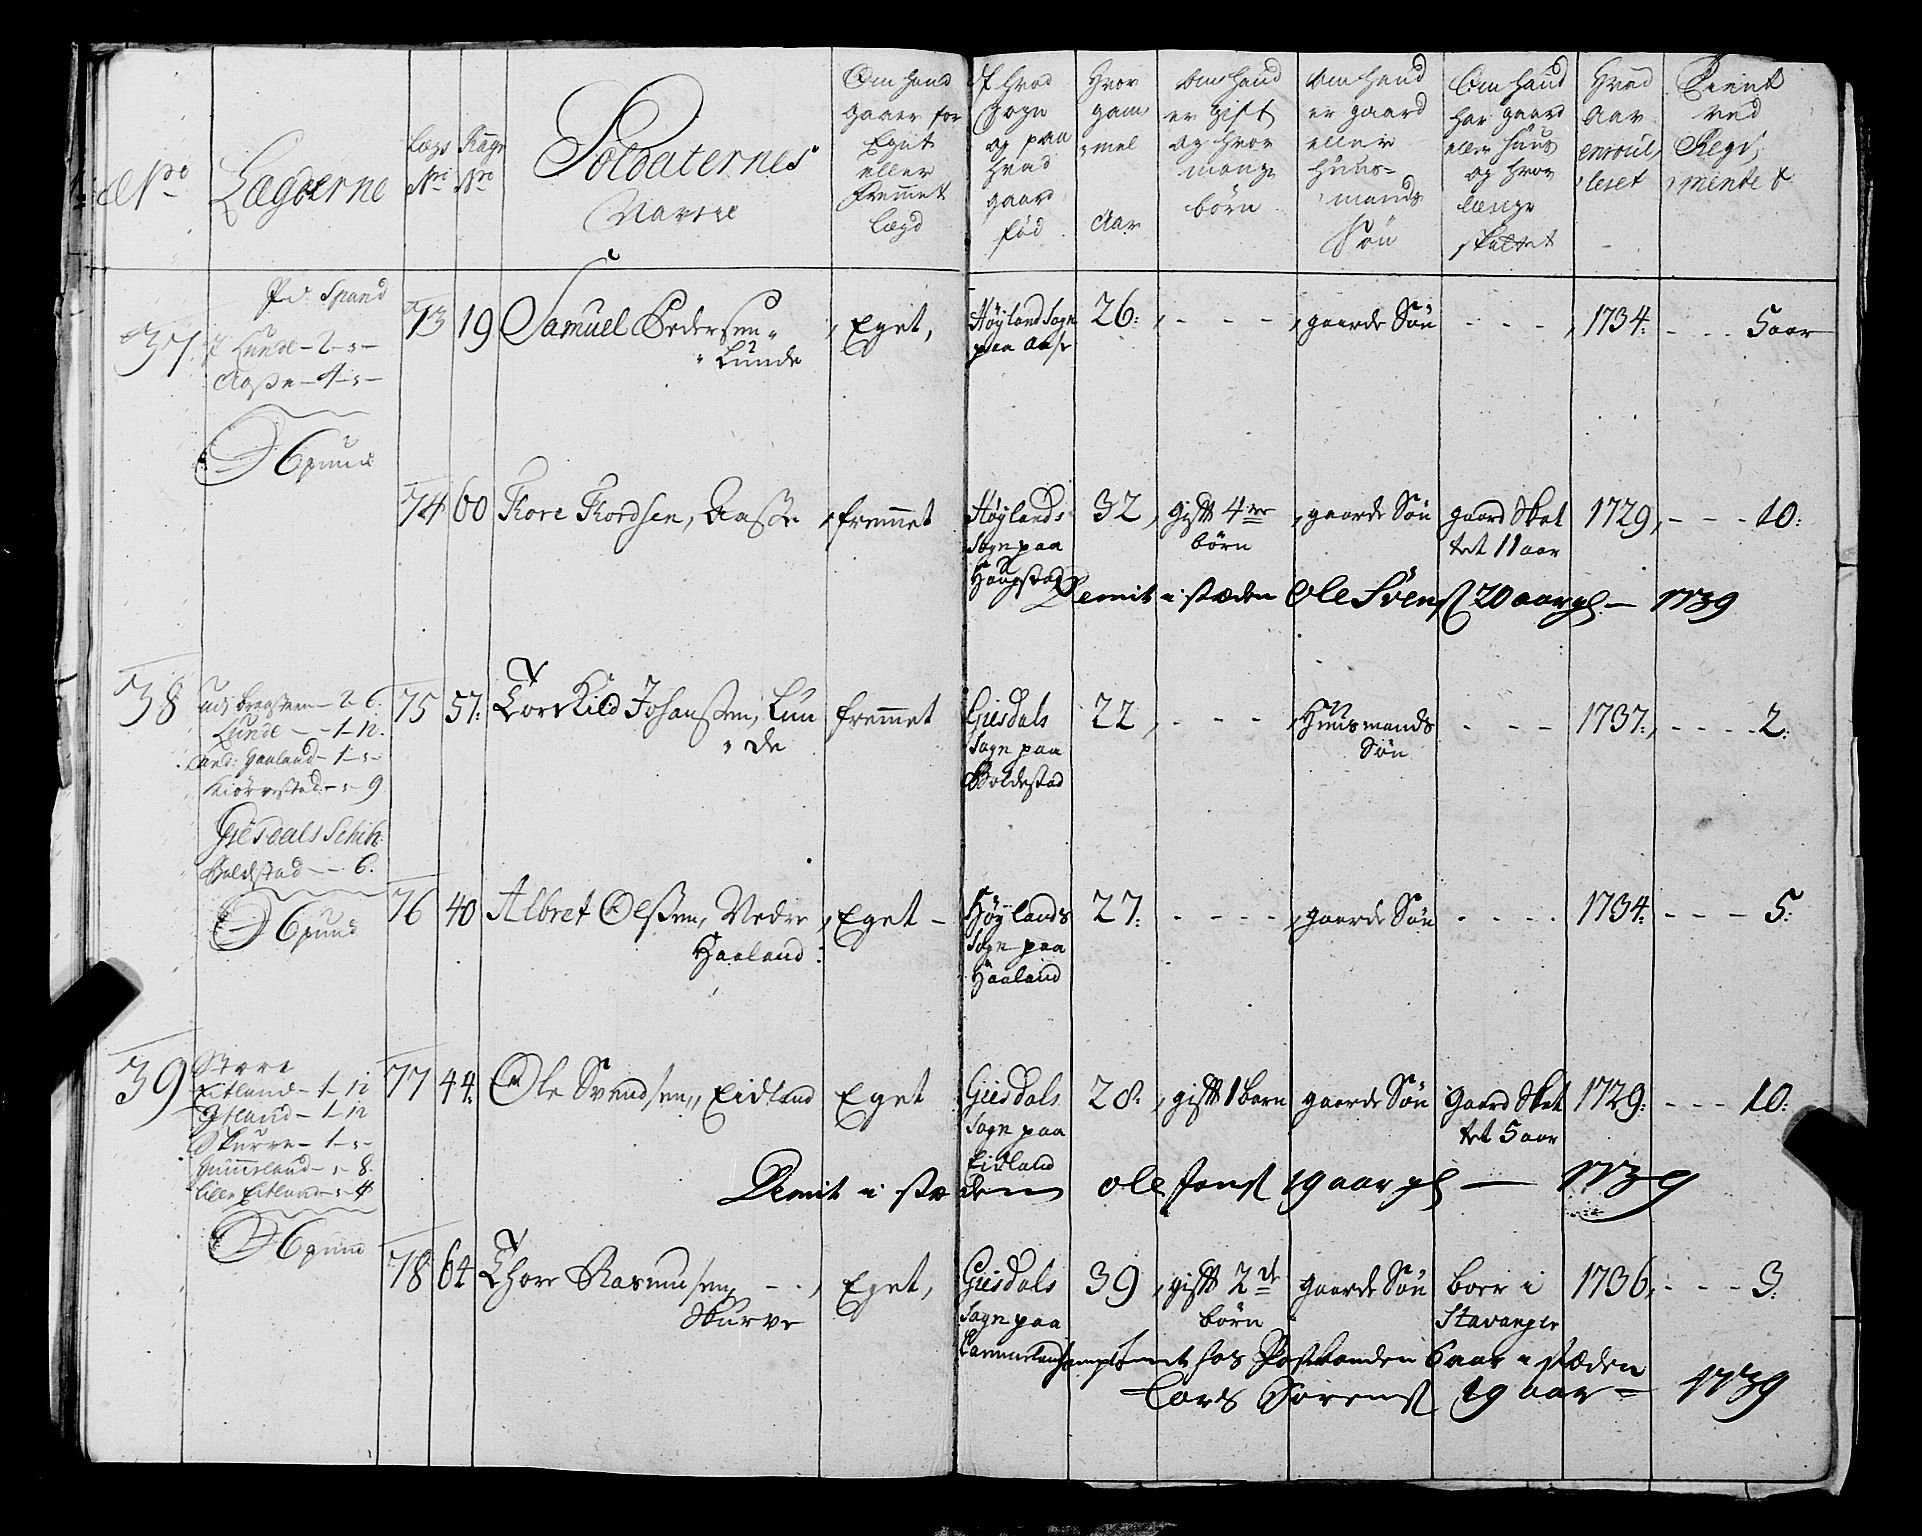 No
Lægderne
Lægs No
Rags No
Soldaternes
Navne
Om hand
gaaer for
Eget
eller
Fremmet
Lægd
Af hvad
Sogn
og paa
hvad
gaard
fød
Hvor
gam,
mel
Aar
Om hand
er gift
og hvor
mange
børn
Om hand
er gaard
eller
huus-
mands
Søn
Om hand
har gaard
eller huus
og hvor
længe
skattet
Hvad
Aar
enroul,
leret
Tient
ved
Regi,
mentet
Spand
37 Lunde - 2 - : -
Aasse - 4 - : -
6 pund
73 19 Samuel Pedersen
Lunde
Eget,
Høyland Sogn
paa Aase
26:
gaarde Søn
1734:
5 aar
74 60 Tore Tordsen, Aasse
fremmet
Høylands
Sogn paa
Haugstad
32
gift 4re
børn
gaarde Søn
gaard Skat
tet 11 aar
1729,
10:
Demit i stæden Ole Svens 20 aar gl - 1739
38
Lunde - 1 - 12.
Haaland - 1 - : -
- : - 9
Giesdals Schib:
Boldestad - - 6.
6 pund
75 57: Torkild Johanssen, Lun
de
fremmet
Giesdals
Sogn paa
Boldestad
22,
Huusmands
Søn
1737:,
2:
76 40 Albret Olssen, Nedre
Haaland:
Eget -
Høylands
Sogn paa
Haaland
27:
gaarde Søn
1734:
5:
39 Store
Eitland - 1 - 12
- 1 - 12
Skurve - 1 - : -
- : - 8.
Lille Eitland - : - 4
6 pund
77 44: Ole Svendsen, Eidland
Eget
Giesdals
Sogn paa
Eidland
28:
gift 1 barn
gaarde Søn
Gaard Skat
tet 5 aar
1729:
10:
Demit i stæden Ole Jons 19 aar gl - 1739
78 64 Thore Rasmusen,
Skurve
Eget,
Giesdals
Sogn paa
39
gift 2de
børn
gaarde Søn
boer i
Stavanger
1736,
3:
hos Postbonden 6 aar i stæden
Lars Sørens 19 aar - 1739